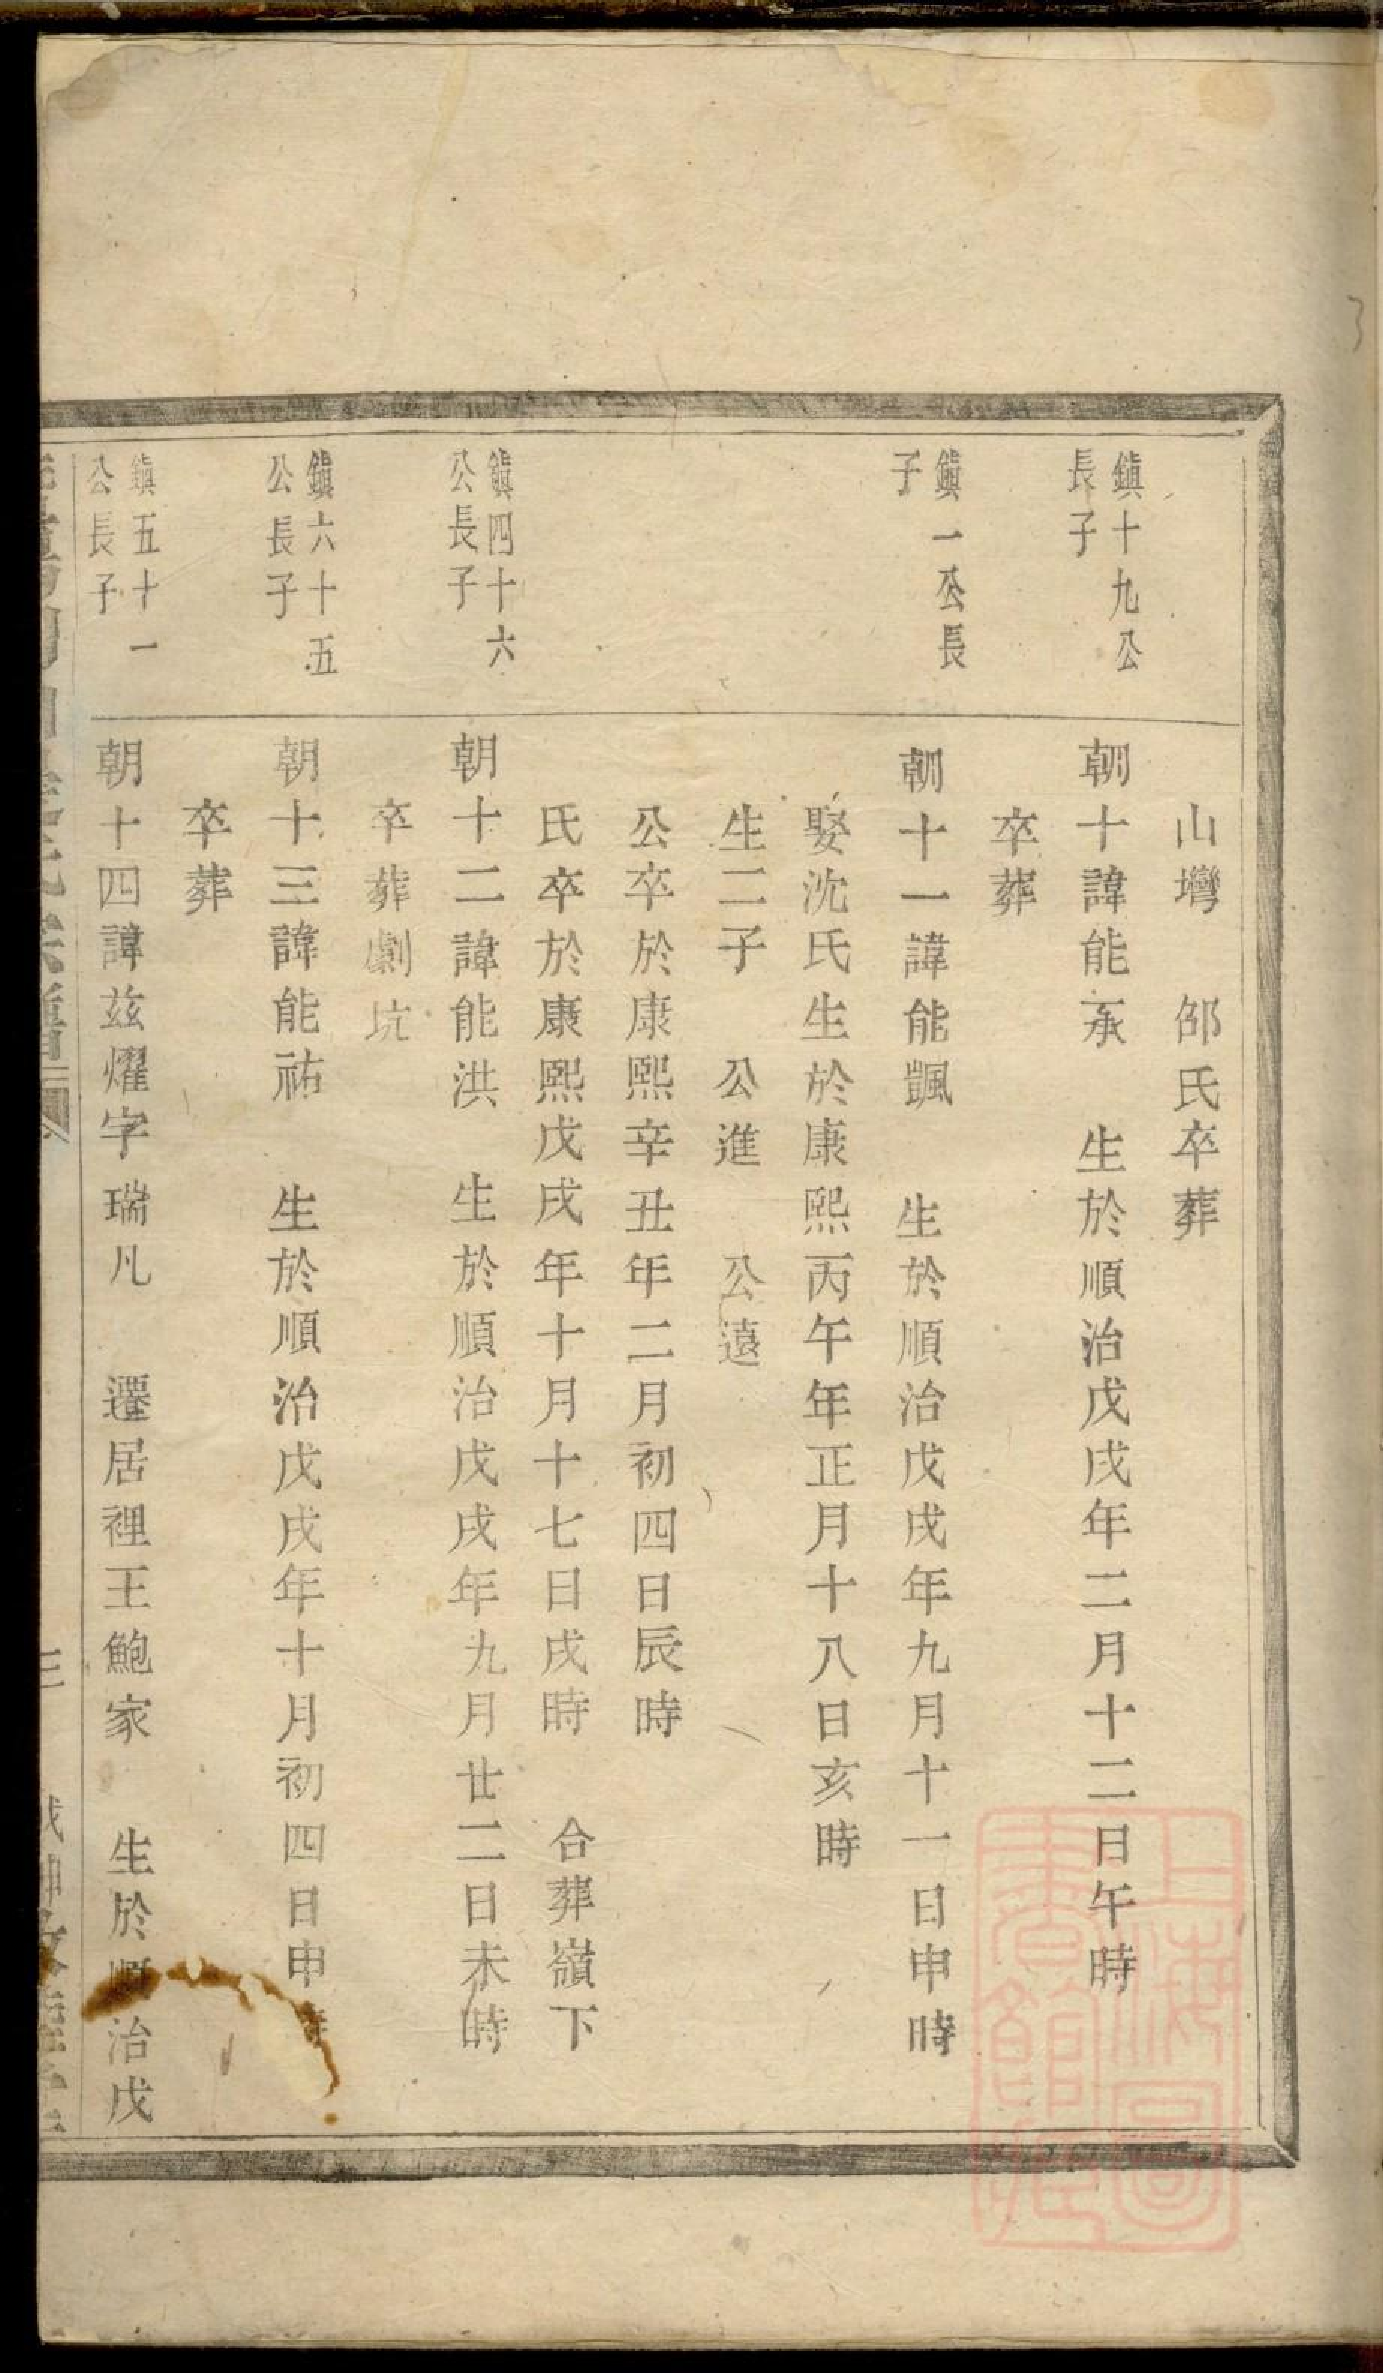 山塆　邵氏卒葬
鎮十九公
長子
朝十諱能承　生於順治戊戌年二月十二日午時
卒葬
鎮一公長
子
朝十一諱能颽　生於順治戊戌年九月十一日申時
娶沈氏生於康熙丙午年正月十八日亥時
生二子　公進　公遠
公卒於康熙辛丑年二月初四日辰時
氏卒於康熙戊戌年十月十七日戌時　合葬嶺下
鎮四十六
公長子
朝十二諱能洪　生於順治戊戌年九月廿二日未時
卒葬劇坑
鎮六十五
公長子
朝十三諱能祐　生於順治戊戌年十月初四日申時
卒葬
鎮五十一
公長子
朝十四諱茲燿字瑞凡　遷居裡王鮑家　生於順治戊
上海圖
書館藏